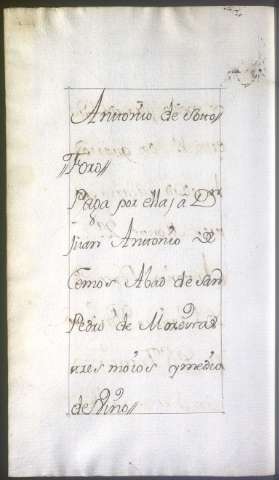 Antonio de Soto//
Foro//
Paga por ellas a Dn
Juan Antonio
Lemos Abad de San
Pedro de Moxoyra
tres moios y medio
de Vino//